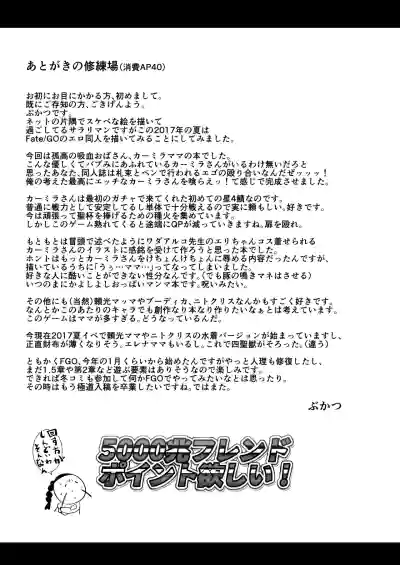 あとがきの修練場(消費AP40)
お初にお目にかかる方、初めまして。
既にご存知の方、ごきげんよう。
ぶかつです。
ネットの片隅でスケベな絵を描いて
過ごしてるサラリマンですがこの2017年の夏は
Fate/GOのエロ同人を描いてみることにしてみました。
今回は孤高の吸血おばさん、カーミラママの本でした。
こんな優しくてバブみにあふれているカーミラさんがいるわけ無いだろと
思ったあなた、同人誌は札束とペンで行われるエゴの殴り合いなんだぜッッッ!
俺の考えた最高にエッチなカーミラさんを喰らえっ!て感じで完成させました。
カーミラさんは最初のガチャで来てくれた初めての星4鯖なのです。
普通に戦力として安定してるし単体で十分戦えるので実に頼もしい。好きです。
今は頑張って聖杯を捧げるための種火を集めています。
しかしこのゲーム熟れてくると途端にQPが減っていきますね。扉を殴れ。
もともとは冒頭で述べたようにワダアルコ先生のエリちゃんコス着せられる
カーミラさんのイラストに感銘を受けて作ろうと思った本でした。
ホントはもっとカーミラさんをけちょんけちょんに辱める内容だったんですが、
描いているうちに「うぅ…ママ…」ってなってしまいました。
好きな人に酷いことができない性分なんです。(でも豚の鳴きマネはさせる)
いつのまにかよしよしおっぱいマンマ本です。呪いみたい。
その他にも(当然)頼光マッマやブーディカ、ニトクリスなんかもすごく好きです。
なんとかこのあたりのキャラでも創作なり本なり作りたいなぁとは考えています。
このゲームはママが多すぎる。どうなっているんだ。
今現在2017夏イベで頼光ママやニトクリスの水着バージョンが始まっていますし、
正直財布が薄くなりそう。エレナママもいるし。これで四聖獣がそろった。(違う)
ともかくFGO、今年の1月くらいから始めたんですがやっと人理も修復したし、
まだ1.5章や第2章など遊ぶ要素はありそうなので楽しみです。
できれば冬コミも参加して何かFGOでやってみたいなとは思ったり。
その時はもう極道入稿を卒業したいですね。ではまた。
ぶかつ
5000兆フレンド
ポイント欲しい!